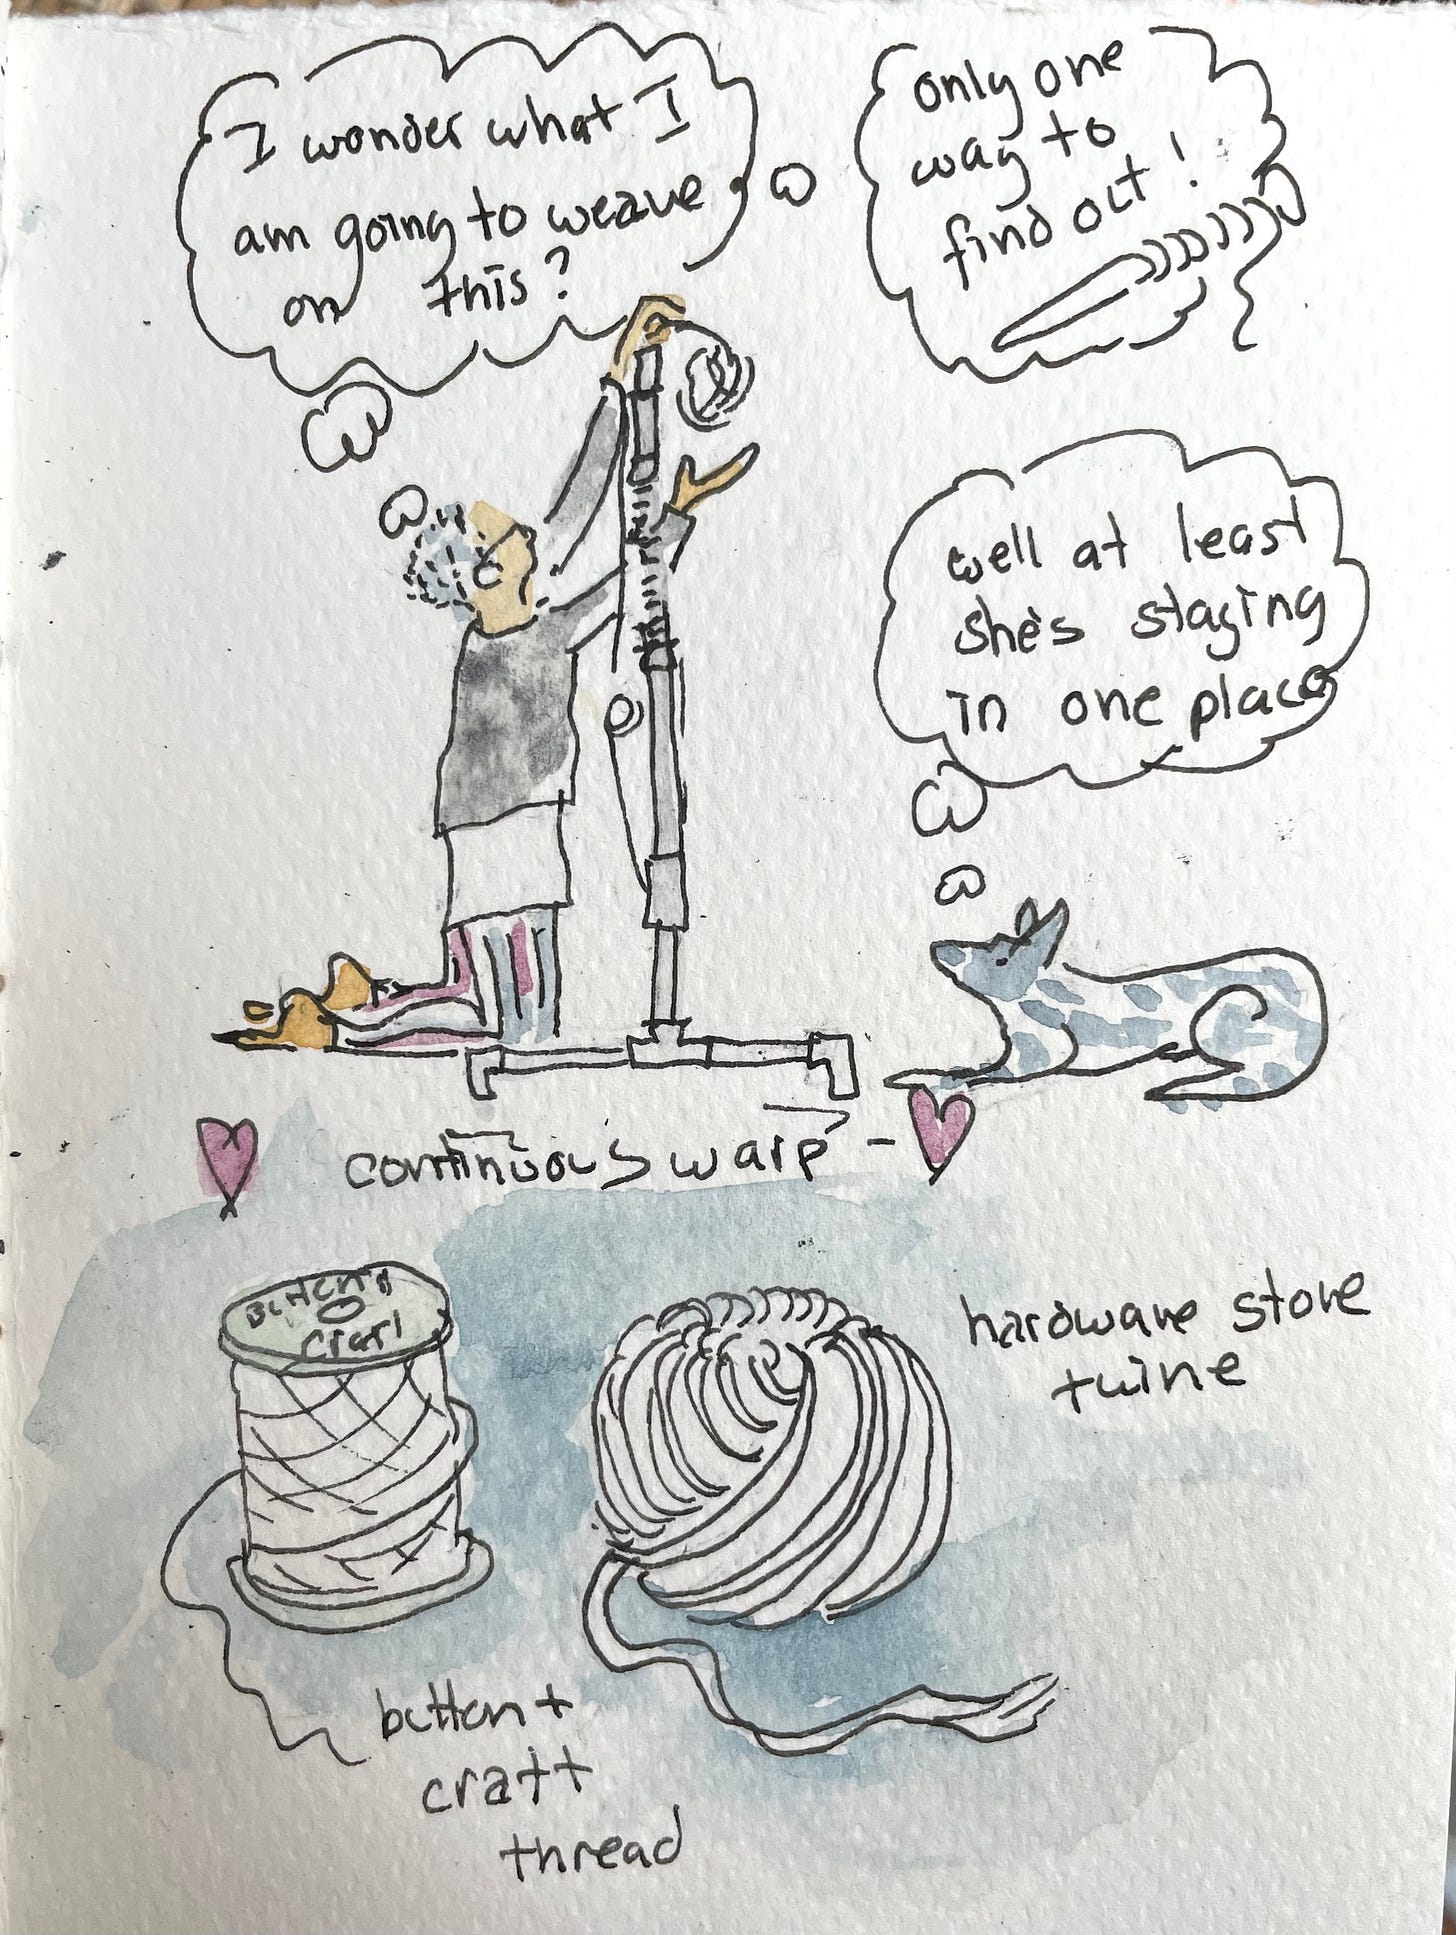 I wonder what I
am going to weave
on this?
only one
way to
find out!
well at least
she's staying
in one place
continuous warp -
Button &
Craft
hardware store
twine
button +
craft
thread